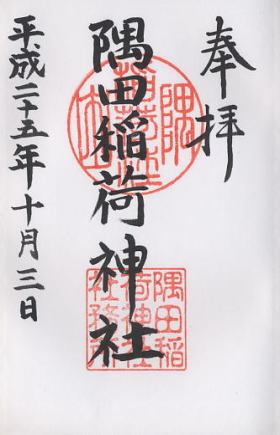 奉拝
隅田稲荷神社
平成二十五年十月三日
隅田稲
荷神社
社務所